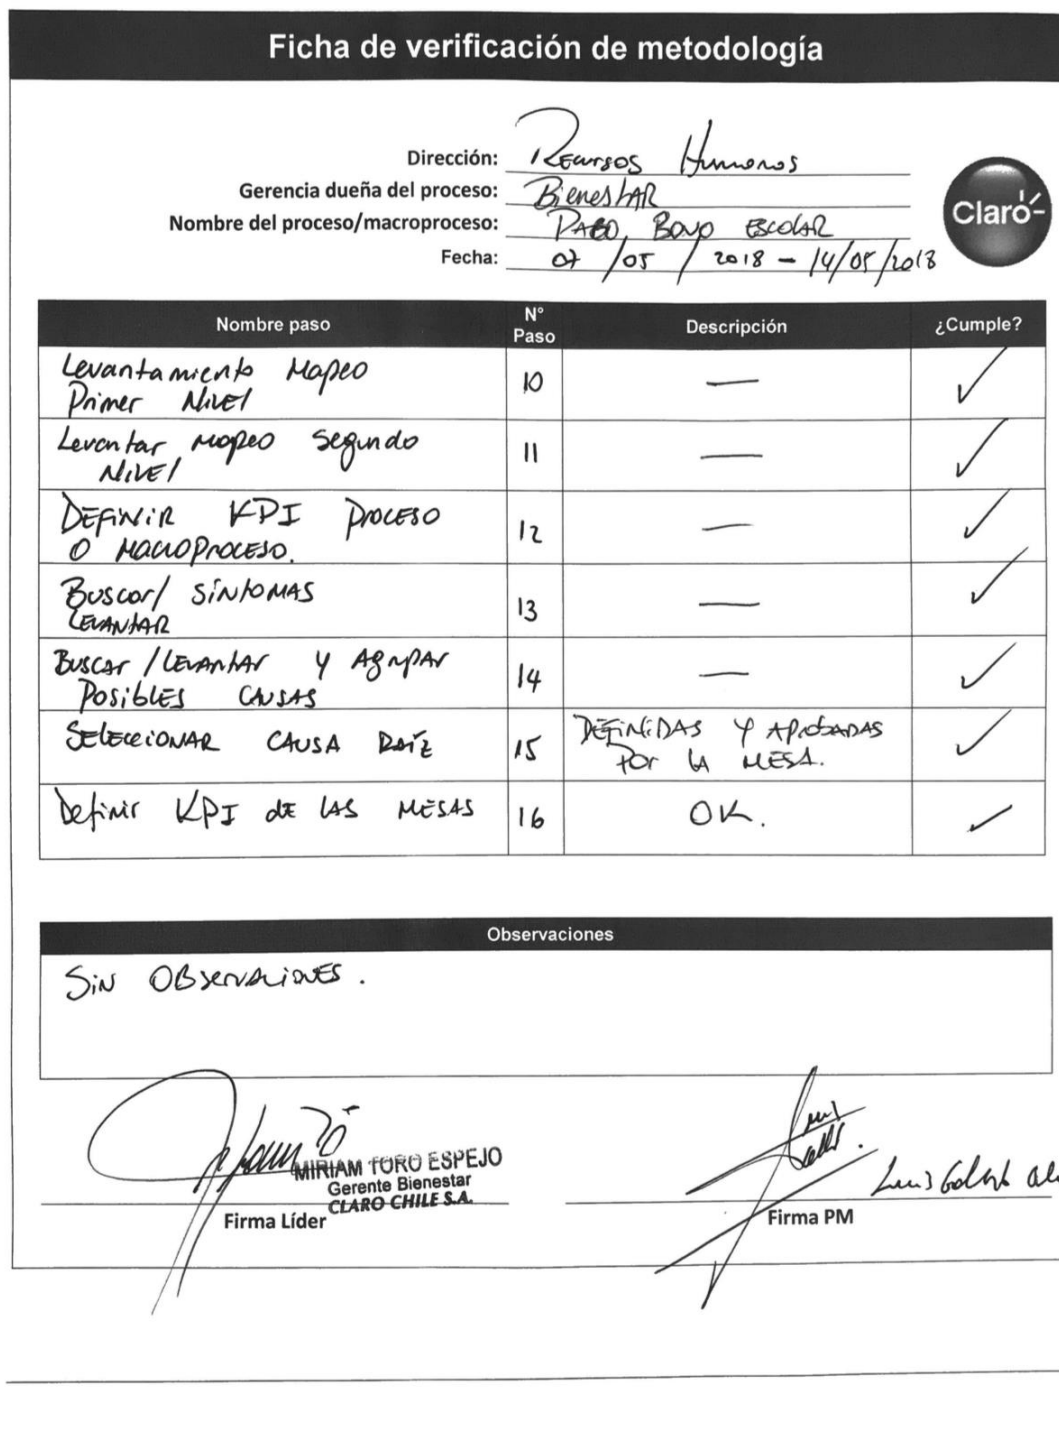 Ficha de verificación de metodología
Dirección: Recursos Humanos
Gerencia dueña del proceso: BienestAR
Nombre del proceso/macroproceso: PAGO BONO ESCOLAR
Fecha: 07/05/2018 - 14/05/2018
Claro-
Nombre paso N° Paso Descripción ¿Cumple?
Levantamiento Mapeo
Primer Nivel 10 — ✓
Levantar mapeo segundo
Nivel 11 — ✓
DEFINIR KPI PROCESO
O MACROPROCESO. 12 — ✓
Buscar/ SÍNTOMAS
LEVANTAR 13 — ✓
BUSCAR /LEVANTAR Y AGRUPAR
POSIBLES CAUSAS 14 — ✓
SELECCIONAR CAUSA RAÍZ 15 DEFINIDAS Y APROBADAS
POR LA MESA. ✓
Definir KPI DE LAS MESAS 16 OK. ✓
Observaciones
SIN OBSERVACIONES.
MIRIAM TORO ESPEJO
Gerente Bienestar
CLARO CHILE S.A.
Firma Líder
Luis
Firma PM